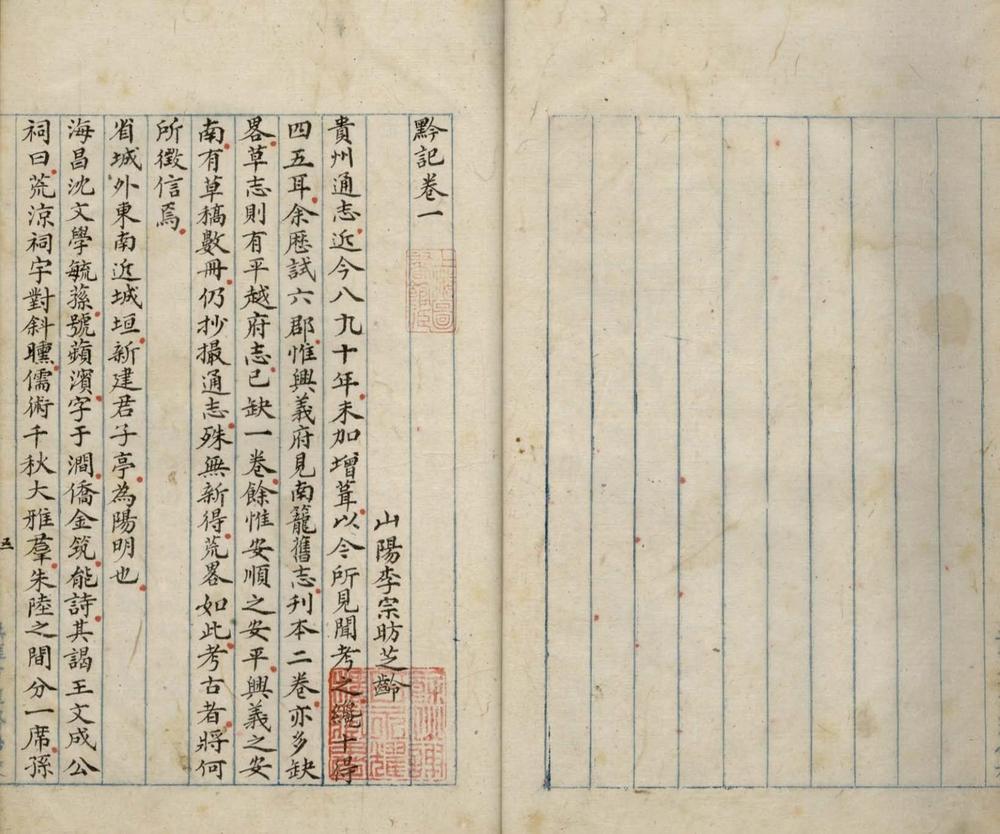 黔記卷一
山陽李宗昉芝齡
貴州通志近今八九十年未加增葺以今所見聞考之纔十得
四五耳余歷試六郡惟興義府見南籠舊志刊本二卷亦多缺
畧草志則有平越府志已缺一卷餘惟安順之安平興義之安
南有草稿數冊仍抄撮通志殊無新得荒畧如此考古者將何
所徵信焉
省城外東南近城垣新建君子亭為陽明也
海昌沈文學毓蓀號蘋濱字于澗僑金筑能詩其謁王文成公
祠曰荒涼祠宇對斜曛儒術千秋大雅羣朱陸之間分一席孫
五